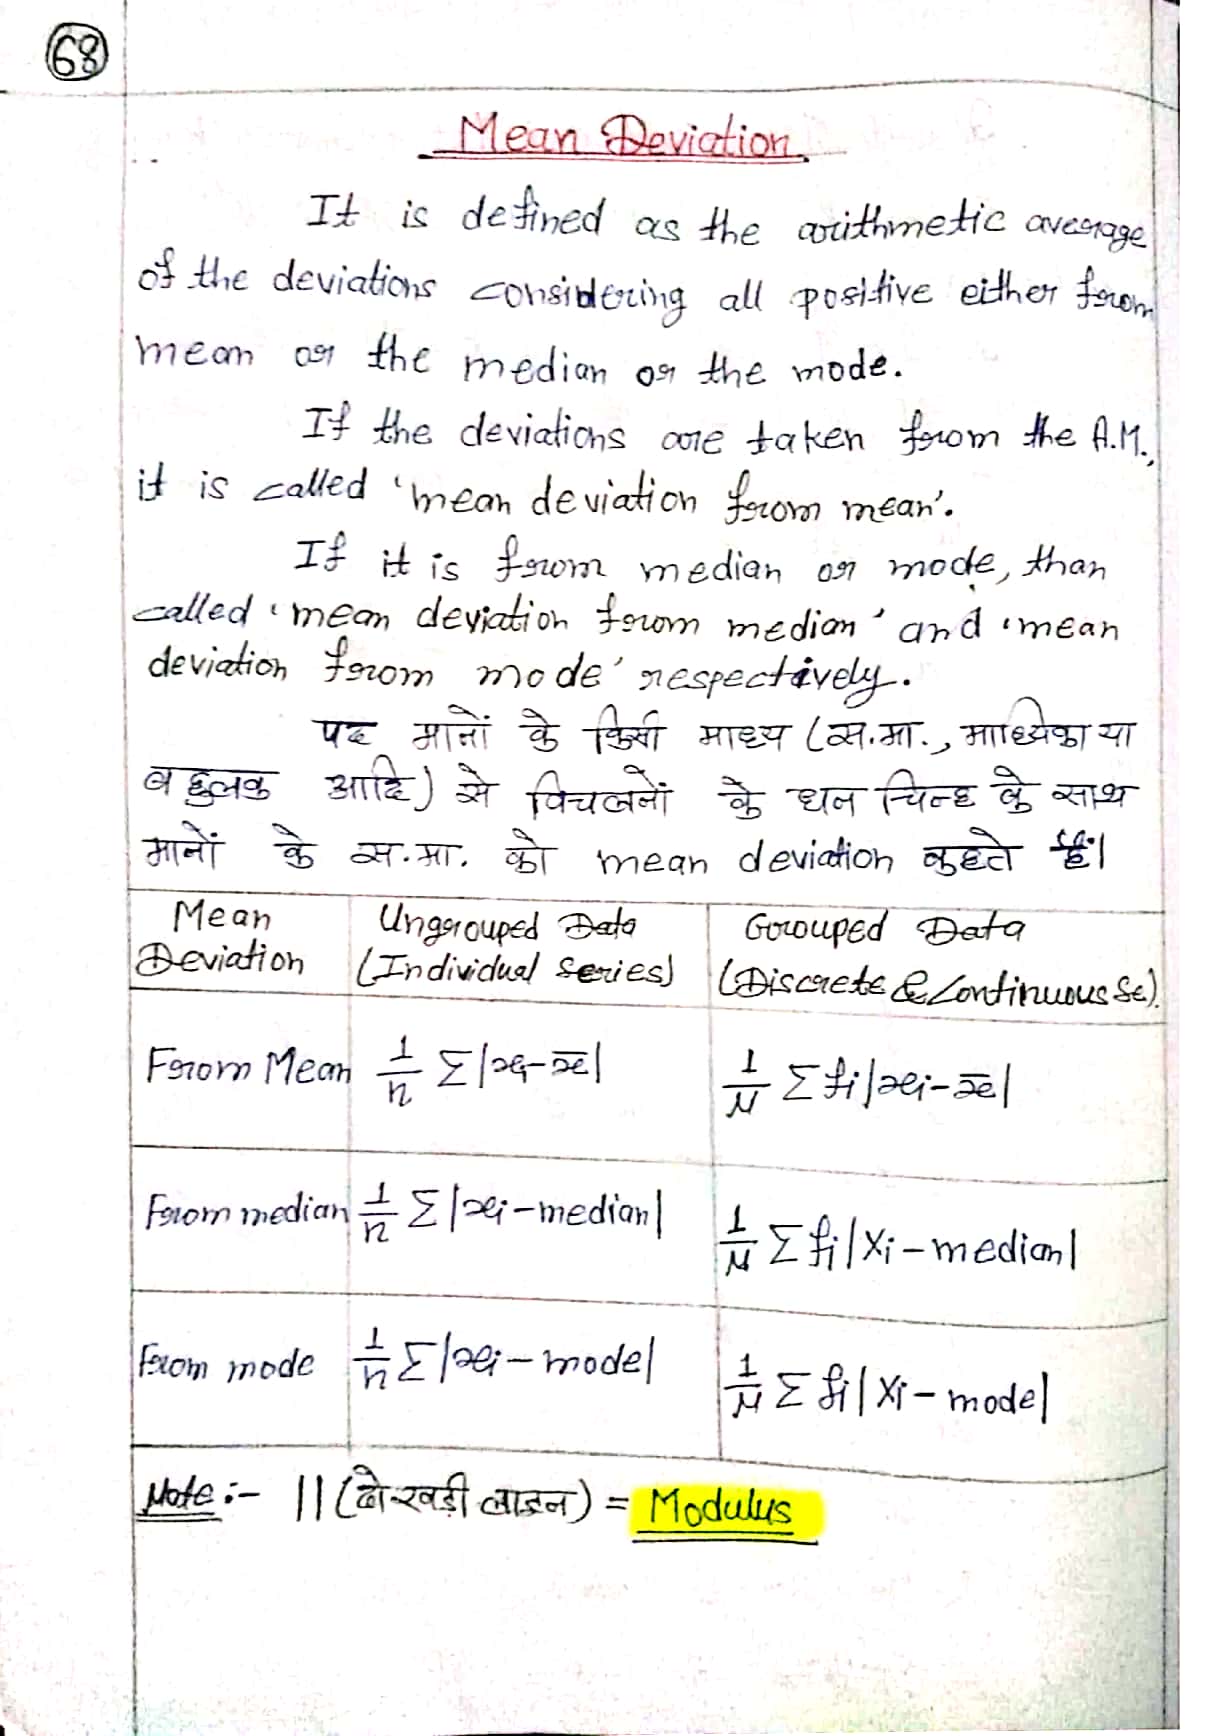 68
Mean Deviation
It is defined as the arithmetic average
of the deviations considering all positive either from
mean or the median or the mode.
If the deviations are taken from the A.M.,
it is called 'mean deviation from mean'.
If it is from median or mode, than
called 'mean deviation from median' and 'mean
deviation from mode' respectively.
पद मानों के किसी माध्य (स.मा., माध्यिका या
बहुलक आदि) से विचलनों के धन चिन्ह के साथ
मानों के स.मा. को mean deviation कहते हैं।
Mean Deviation | Ungrouped Data (Individual series) | Grouped Data (Discrete & Continuous Se).
From Mean | 1/n Σ|xi-x̄| | 1/N Σfi|xi-x̄|
From median | 1/n Σ|xi-median| | 1/N Σfi|Xi-median|
From mode | 1/n Σ|xi-mode| | 1/N Σfi|Xi-mode|
Note :- || (दो खड़ी लाइन) = Modulus